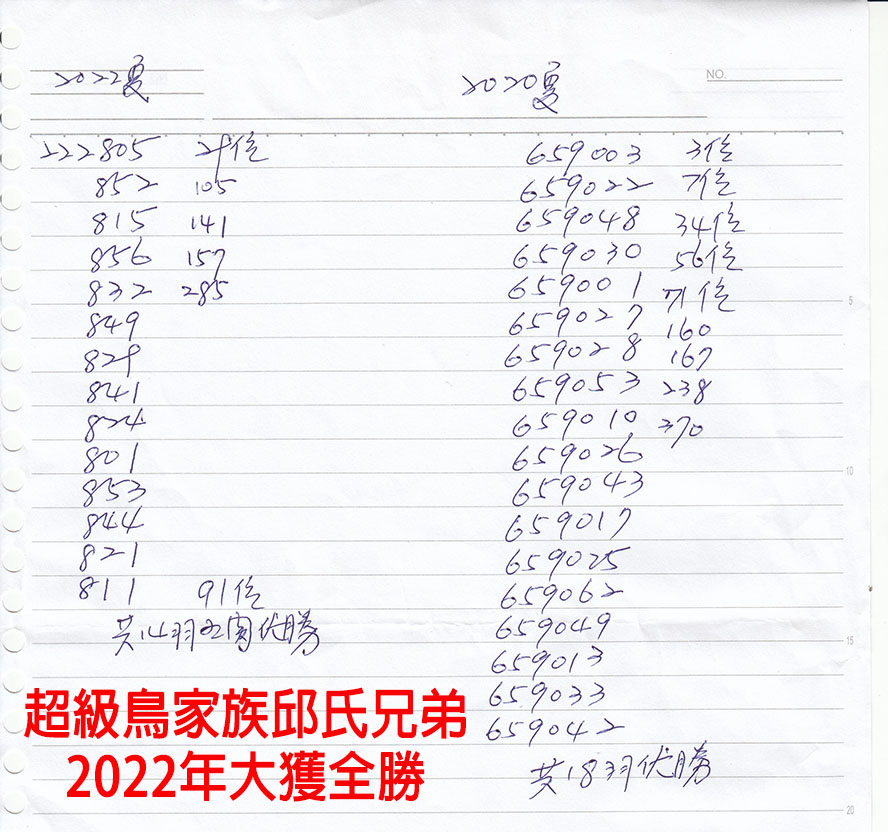 2022夏
222805 29位
852 105
815 141
856 157
832 285
849
829
841
824
801
853
844
821
811 91位
共14羽五関优勝
2020夏
NO.
659003 3位
659022 7位
659048 34位
659030 56位
659001 71位
659027 160
659028 167
659053 238
659010 370
659026
659043
659017
659025
659062
659049
659013
659033
659042
共18羽优勝
5
10
15
20
超級鳥家族邱氏兄弟
2022年大獲全勝